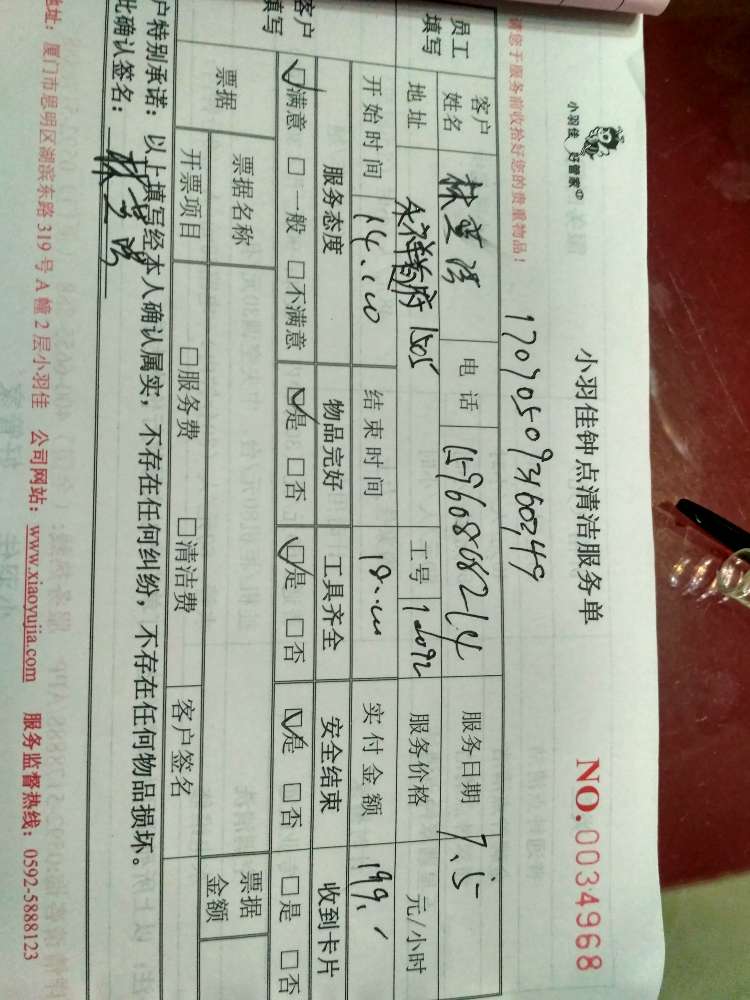 小羽佳 好管家
小羽佳钟点清洁服务单
NO.0034968
请您于服务前收拾好您的贵重物品！
员工填写
客户姓名
电话 15960808214
服务日期 7.5
地址 1505
工号
服务价格 元/小时
开始时间 14:00
结束时间 18:00
实付金额 199.
客户填写
服务态度 物品完好 工具齐全 安全结束 收到卡片
☑满意 □一般 □不满意 ☑是 □否 ☑是 □否 ☑是 □否 □是 □否
票据
票据名称
票据金额
开票项目 □服务费 □清洁费 客户签名
户特别承诺：以上填写经本人确认属实，不存在任何纠纷，不存在任何物品损坏。
此确认签名：
地址：厦门市思明区湖滨东路319号A幢2层小羽佳 公司网站：www.xiaoyujia.com 服务监督热线：0592-5888123